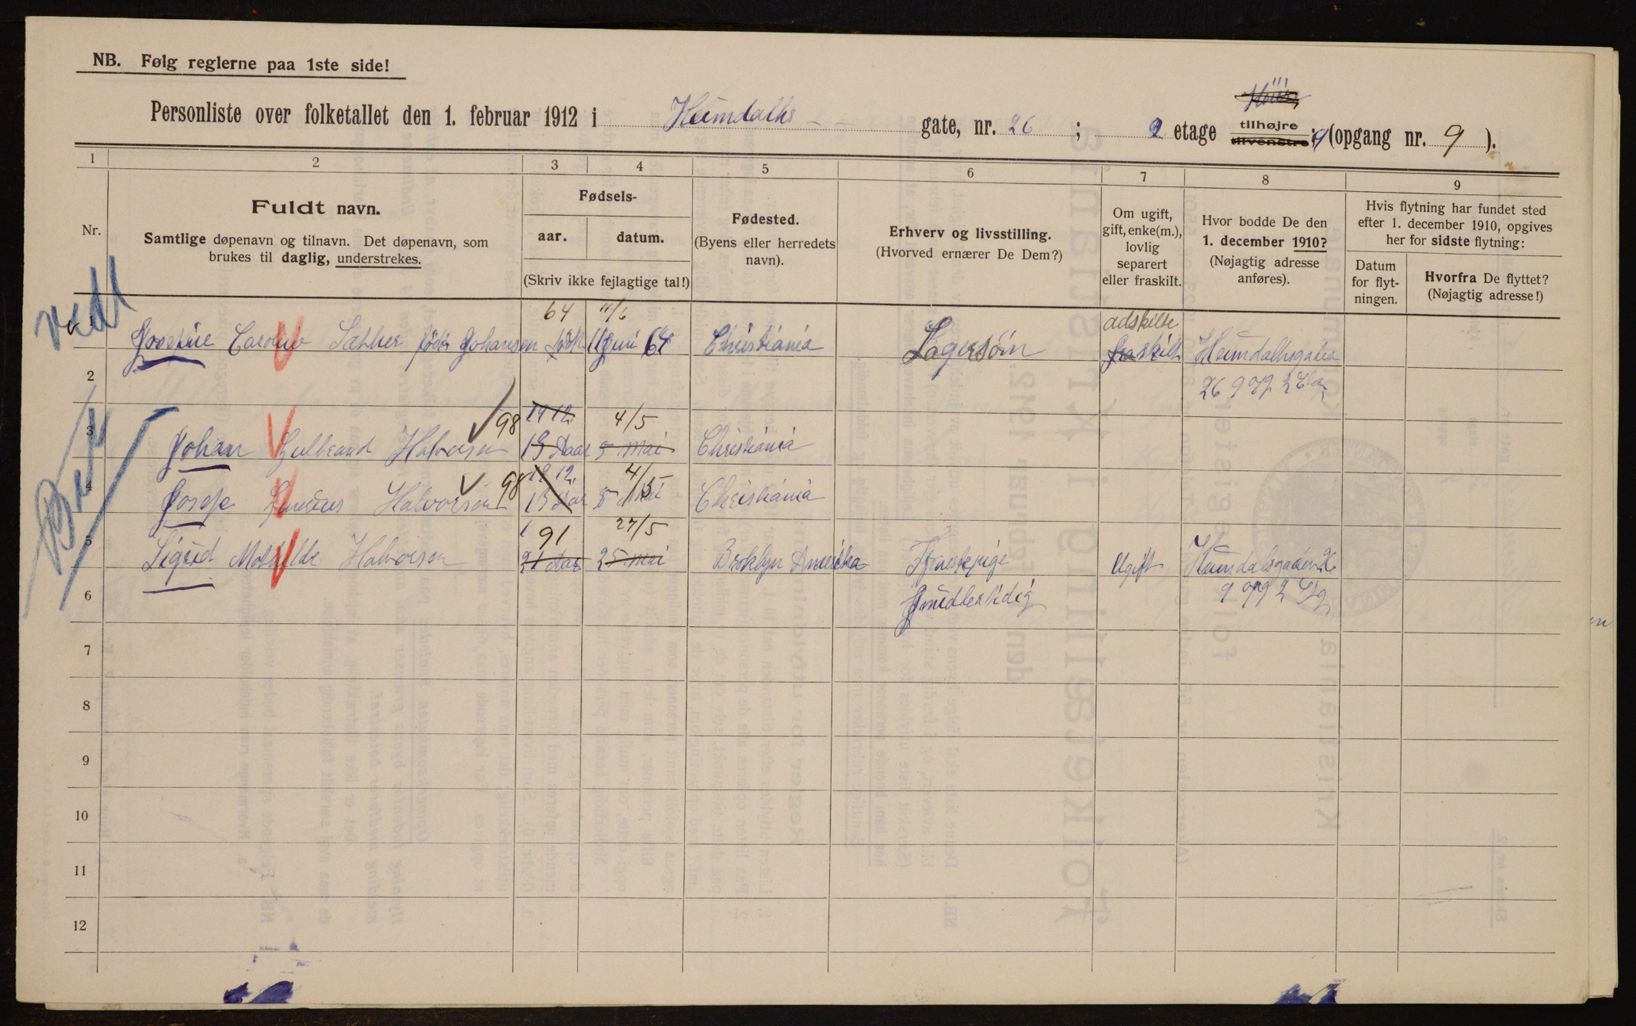 NB. Følg reglerne paa 1ste side!
Personliste over folketallet den 1. februar 1912 i Heimdalhs gate, nr. 26 ; 2 etage tilhøjre tilvenstre (opgang nr. 9 ).
1 2 3 4 5 6 7 8 9
Nr.
Fuldt navn.
Samtlige døpenavn og tilnavn. Det døpenavn, som
brukes til daglig, understrekes.
Fødsels-
aar. datum.
(Skriv ikke fejlagtige tal!)
Fødested.
(Byens eller herredets
navn).
Erhverv og livsstilling.
(Hvorved ernærer De Dem?)
Om ugift,
gift, enke(m.),
lovlig
separert
eller fraskilt.
Hvor bodde De den
1. december 1910?
(Nøjagtig adresse
anføres).
Hvis flytning har fundet sted
efter 1. december 1910, opgives
her for sidste flytning:
Datum
for flyt-
ningen.
Hvorfra De flyttet?
(Nøjagtig adresse!)
64 11/6 adskilte
Caroline Sæther født Johansen 11 Juni 64 Christiania fraskilt Heimdalhsgata
2
26
3 98 1912 4/5
Johan Gulbrand Halvorsen 13 Aar 5 Mai Christiania
4 98 1912 4/5
Halvorsen 13 Aar Mai Christiania
5 91 27/5
Sigrid Mathilde Halvorsen 21 Aar 25 Mai Broklyn Amerika Ugift
6
7
8
9
10
11
12